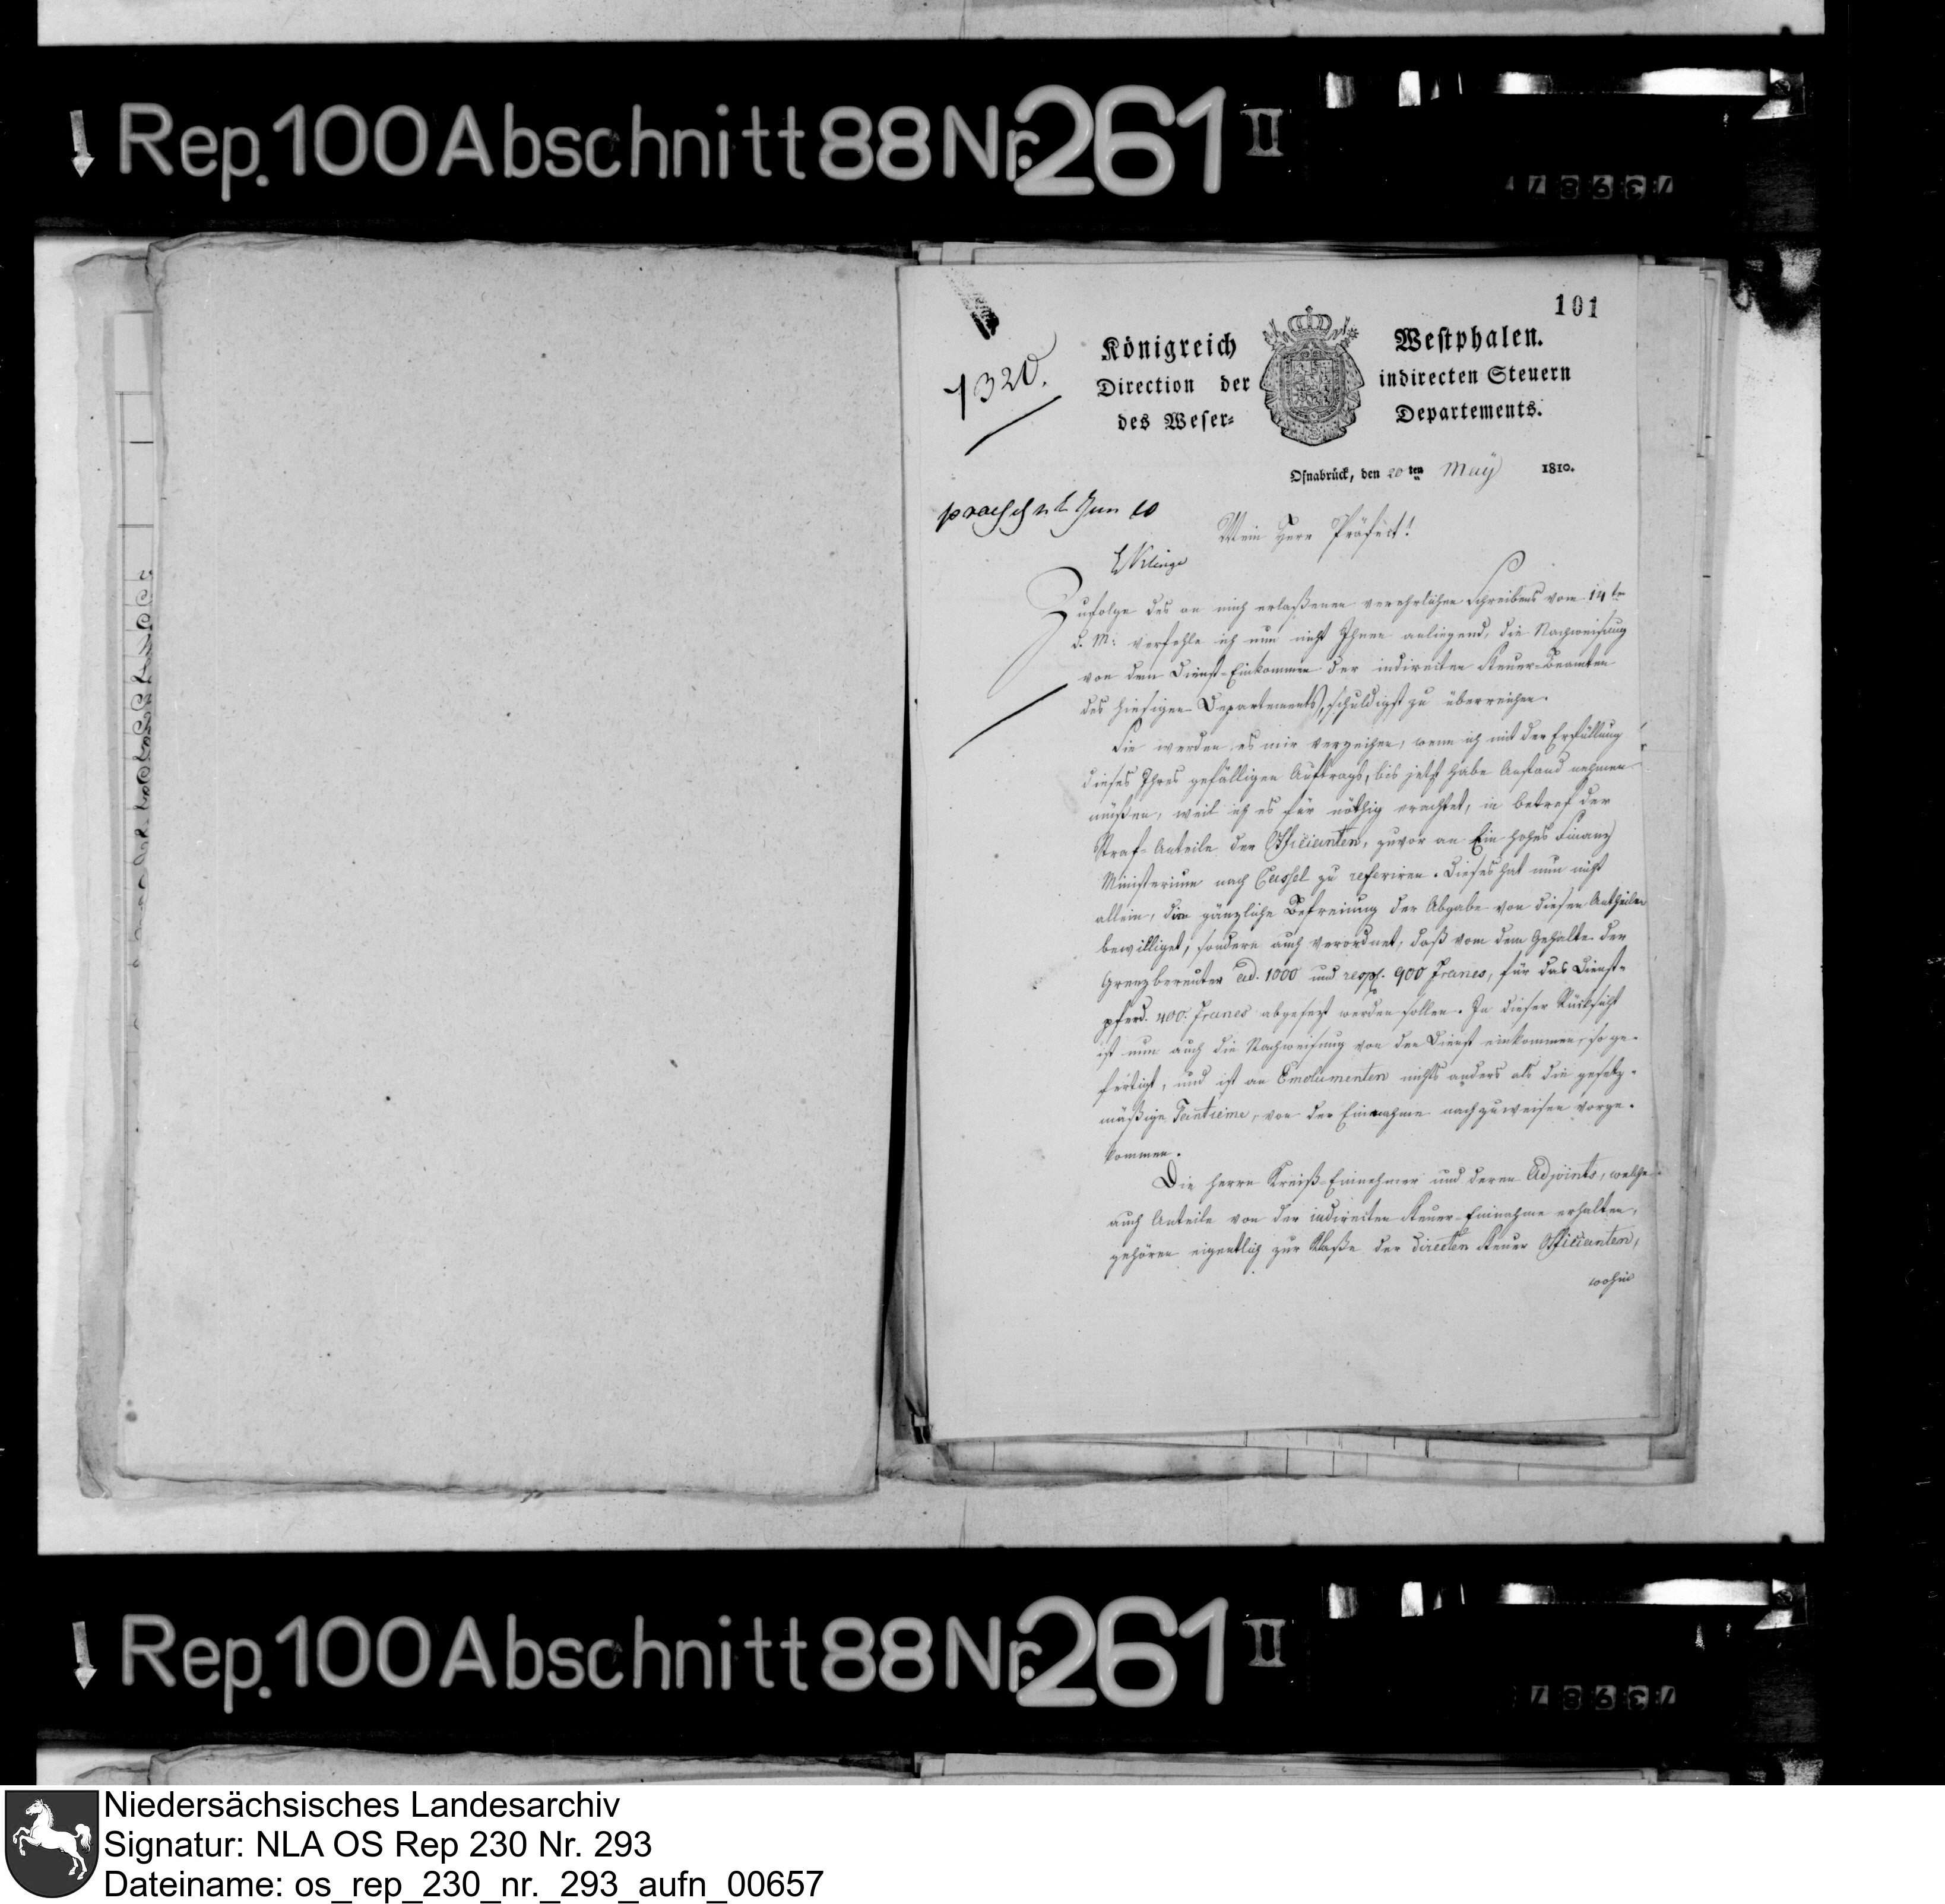 Rep. 100 Abschnitt 88 Nr. 261 II
101
1320.
Königreich Westphalen.
Direction der indirecten Steuern
des Weser- Departements.
Osnabrück, den 20 ten May 1810.
Jun 10
Mein Herr Präfect!
Zufolge des an mich erlaßenen verehrlichen Schreibens vom 14 ten
d. M: verfehle ich nun nicht Ihnen anliegend, die Nachweisung
von dem Dienst-Einkommen der indirecten Steuer-Beamten
des hiesigen Departements, schuldigst zu überreichen.
Sie werden es mir verzeihen, wenn ich mit der Erfüllung
dieses Ihres gefälligen Auftrags, bis jetzt habe Anstand nehmen
müßen, weil ich es für nöthig erachtet, in betref der
Straf-Anteile der Officianten, zuvor an Ein hohes Finanz
Ministerium nach Cassel zu referiren. Dieses hat nun nicht
allein, die gänzliche Befreiung der Abgabe von diesen Antheilen
bewilliget, sondern auch verordnet, daß vom dem Gehalte der
Grenzbereuter ad. 1000 und resp. 900 Francs, für das Dienst-
pferd. 400. Francs abgesezt werden sollen. In dieser Rücksicht
ist nun auch die Nachweisung von den Dienst einkommen, so ge-
fertigt, und ist an Emolumenten nichts anders als die gesetz-
mäßige Tantieme, von der Einnahme nachzuweisen vorge-
kommen.
Die Herrn Kreiß-Einnehmer und deren Adjoints, welche
auch Anteile von der indirecten Steuer-Einnahme erhalten,
gehören eigentlich zur Klaße der directen Steuer Officianten,
wohin
Rep. 100 Abschnitt 88 Nr. 261 II
Niedersächsisches Landesarchiv
Signatur: NLA OS Rep 230 Nr. 293
Dateiname: os_rep_230_nr._293_aufn_00657